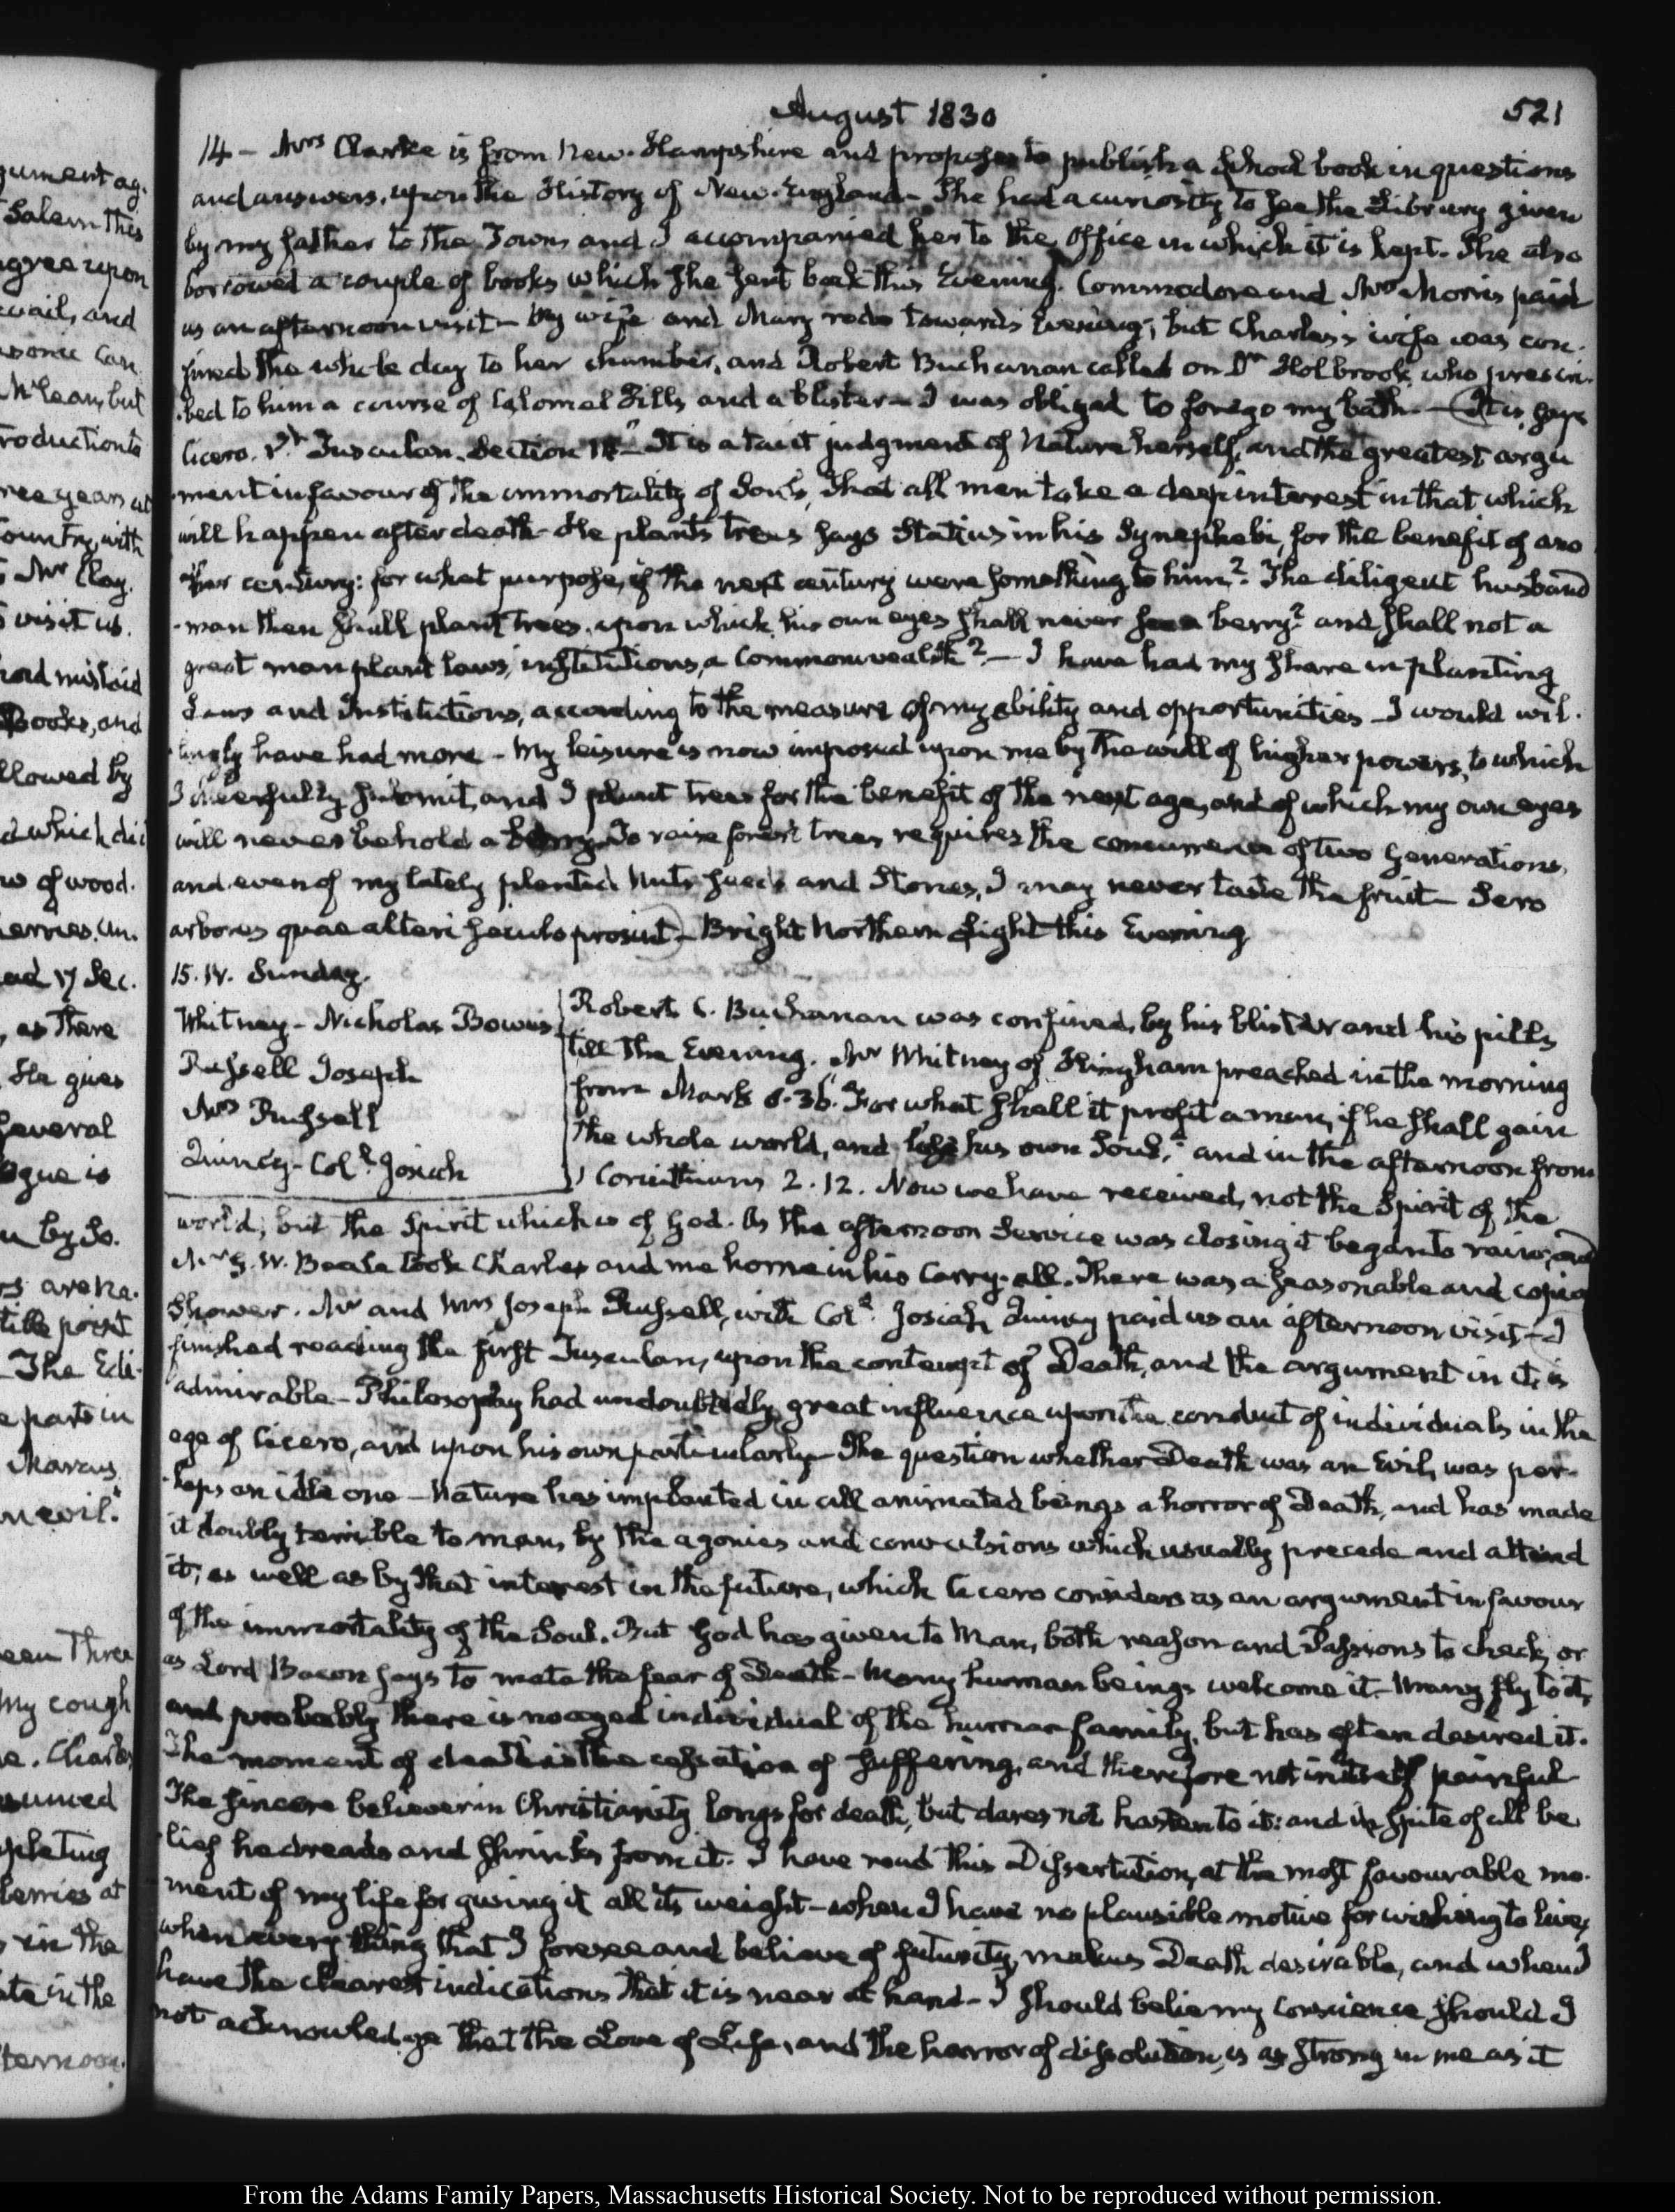 August 1830
521
14 - Mrs Clarke is from New-Hampshire and proposes to publish a School book in questions
and answers, upon the History of New-England - She had a curiosity to see the Library given
by my father to the Town, and I accompanied her to the Office in which it is kept. She also
borrowed a couple of books which she sent back this Evening. Commodore and Mrs Morris paid
us an afternoon visit - My wife and Mary rode towards Evening; but Charles's wife was con-
fined the whole day to her chamber, and Robert Buchanan called on Dr Holbrook, who prescri-
bed to him a course of Calomel Pills and a blister - I was obliged to forego my bath. - (It is, says
Cicero. Tusculan. Section 14 - It is a tacit judgment of Nature herself, and the greatest argu
ment in favour of the immortality of Souls, that all men take a deep interest in that which
will happen after death - He plants trees says Statius in his Synephebi, for the benefit of ano
ther century: for what purpose, if the next century were something to him? The diligent husband
-man then shall plant trees, upon which his own eyes shall never see a berry? and shall not a
great man plant laws, institutions, a Commonwealth? - I have had my share in planting
Laws and Institutions, according to the measure of my ability and opportunities - I would wil-
lingly have had more - My leisure is now imposed upon me by the will of higher powers, to which
I cheerfully submit, and I plant trees for the benefit of the next age, and of which my own eyes
will never behold a berry. To raise forest trees requires the concurrence of two Generations,
and even of my lately planted Nuts seeds and Stones, I may never taste the fruit - Sero
arbores quae alteri seculo prosint) - Bright Northern Light this Evening
15. IV. Sunday.
Whitney - Nicholas Bowes
Russell Joseph
Mrs Russell
Quincy - Coll. Josiah
Robert C. Buchanan was confined, by his blister and his pills
till the Evening. Mr Whitney of Hingham preached in the morning
from Mark 8.36. For what shall it profit a man, if he shall gain
the whole world, and lose his own Soul? and in the afternoon from
1 Corinthians 2.12. Now we have received, not the Spirit of the
world; but the Spirit which is of God. As the afternoon Service was closing it began to rain, and
Mr G. W. Beale took Charles and me home in his Carry-all. There was a seasonable and copious
Shower. Mr and Mrs Joseph Russell, with Coll. Josiah Quincy paid us an afternoon visit - I
finished reading the first Tusculan, upon the contempt of Death, and the argument in it, is
admirable - Philosophy had undoubtedly great influence upon the conduct of individuals in the
age of Cicero, and upon his own particularly - The question whether Death was an Evil, was per-
haps an idle one - Nature has implanted in all animated beings a horror of Death, and has made
it doubly terrible to man, by the agonies and convulsions which usually precede and attend
it; as well as by that interest in the future, which Cicero considers as an argument in favour
of the immortality of the Soul. But God has given to Man, both reason and Passions to check, or
as Lord Bacon says to mate the fear of Death - Many human beings welcome it - Many fly to it,
and probably there is no aged individual of the human family, but has often desired it.
The moment of death is the cessation of suffering, and therefore not in itself painful
The sincere believer in Christianity longs for death, but dares not hasten to it: and in spite of all be
lief he dreads and shrinks from it. I have read this Dissertation, at the most favourable mo-
ment of my life for giving it all its weight - when I have no plausible motive for wishing to live,
when every thing that I foresee and believe of futurity, makes Death desirable, and when I
have the clearest indications that it is near at hand - I should belie my Conscience should I
not acknowledge that the Love of Life, and the horror of dissolution, is as strong in me as it
From the Adams Family Papers, Massachusetts Historical Society. Not to be reproduced without permission.